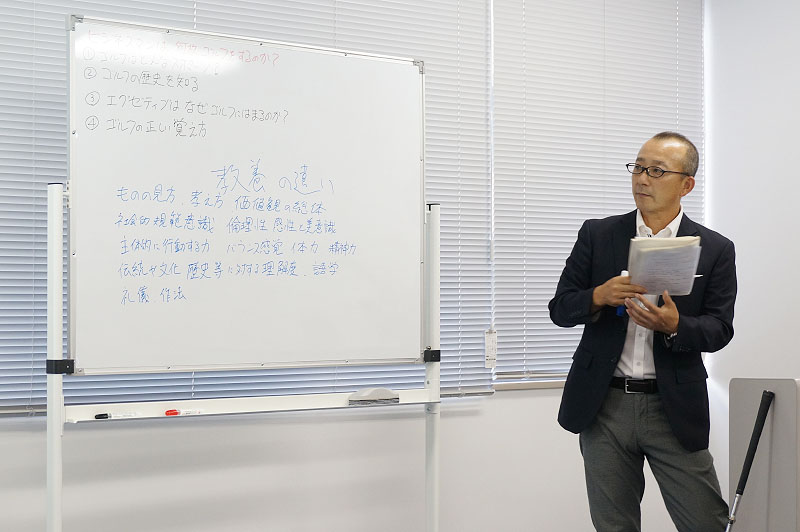 ビジネスマンは何故ゴルフをするのか?
②ゴルフの歴史を知る
③エグゼティブはなぜゴルフにはまるのか?
④ゴルフの正しい覚え方
教養の違い
ものの見方、考え方 価値観の総体
社会的規範意識 倫理性 感性と美意識
主体的に行動する力 バランス感覚 体力 精神力
伝統や文化 歴史等に対する理解度、語学
礼儀、作法